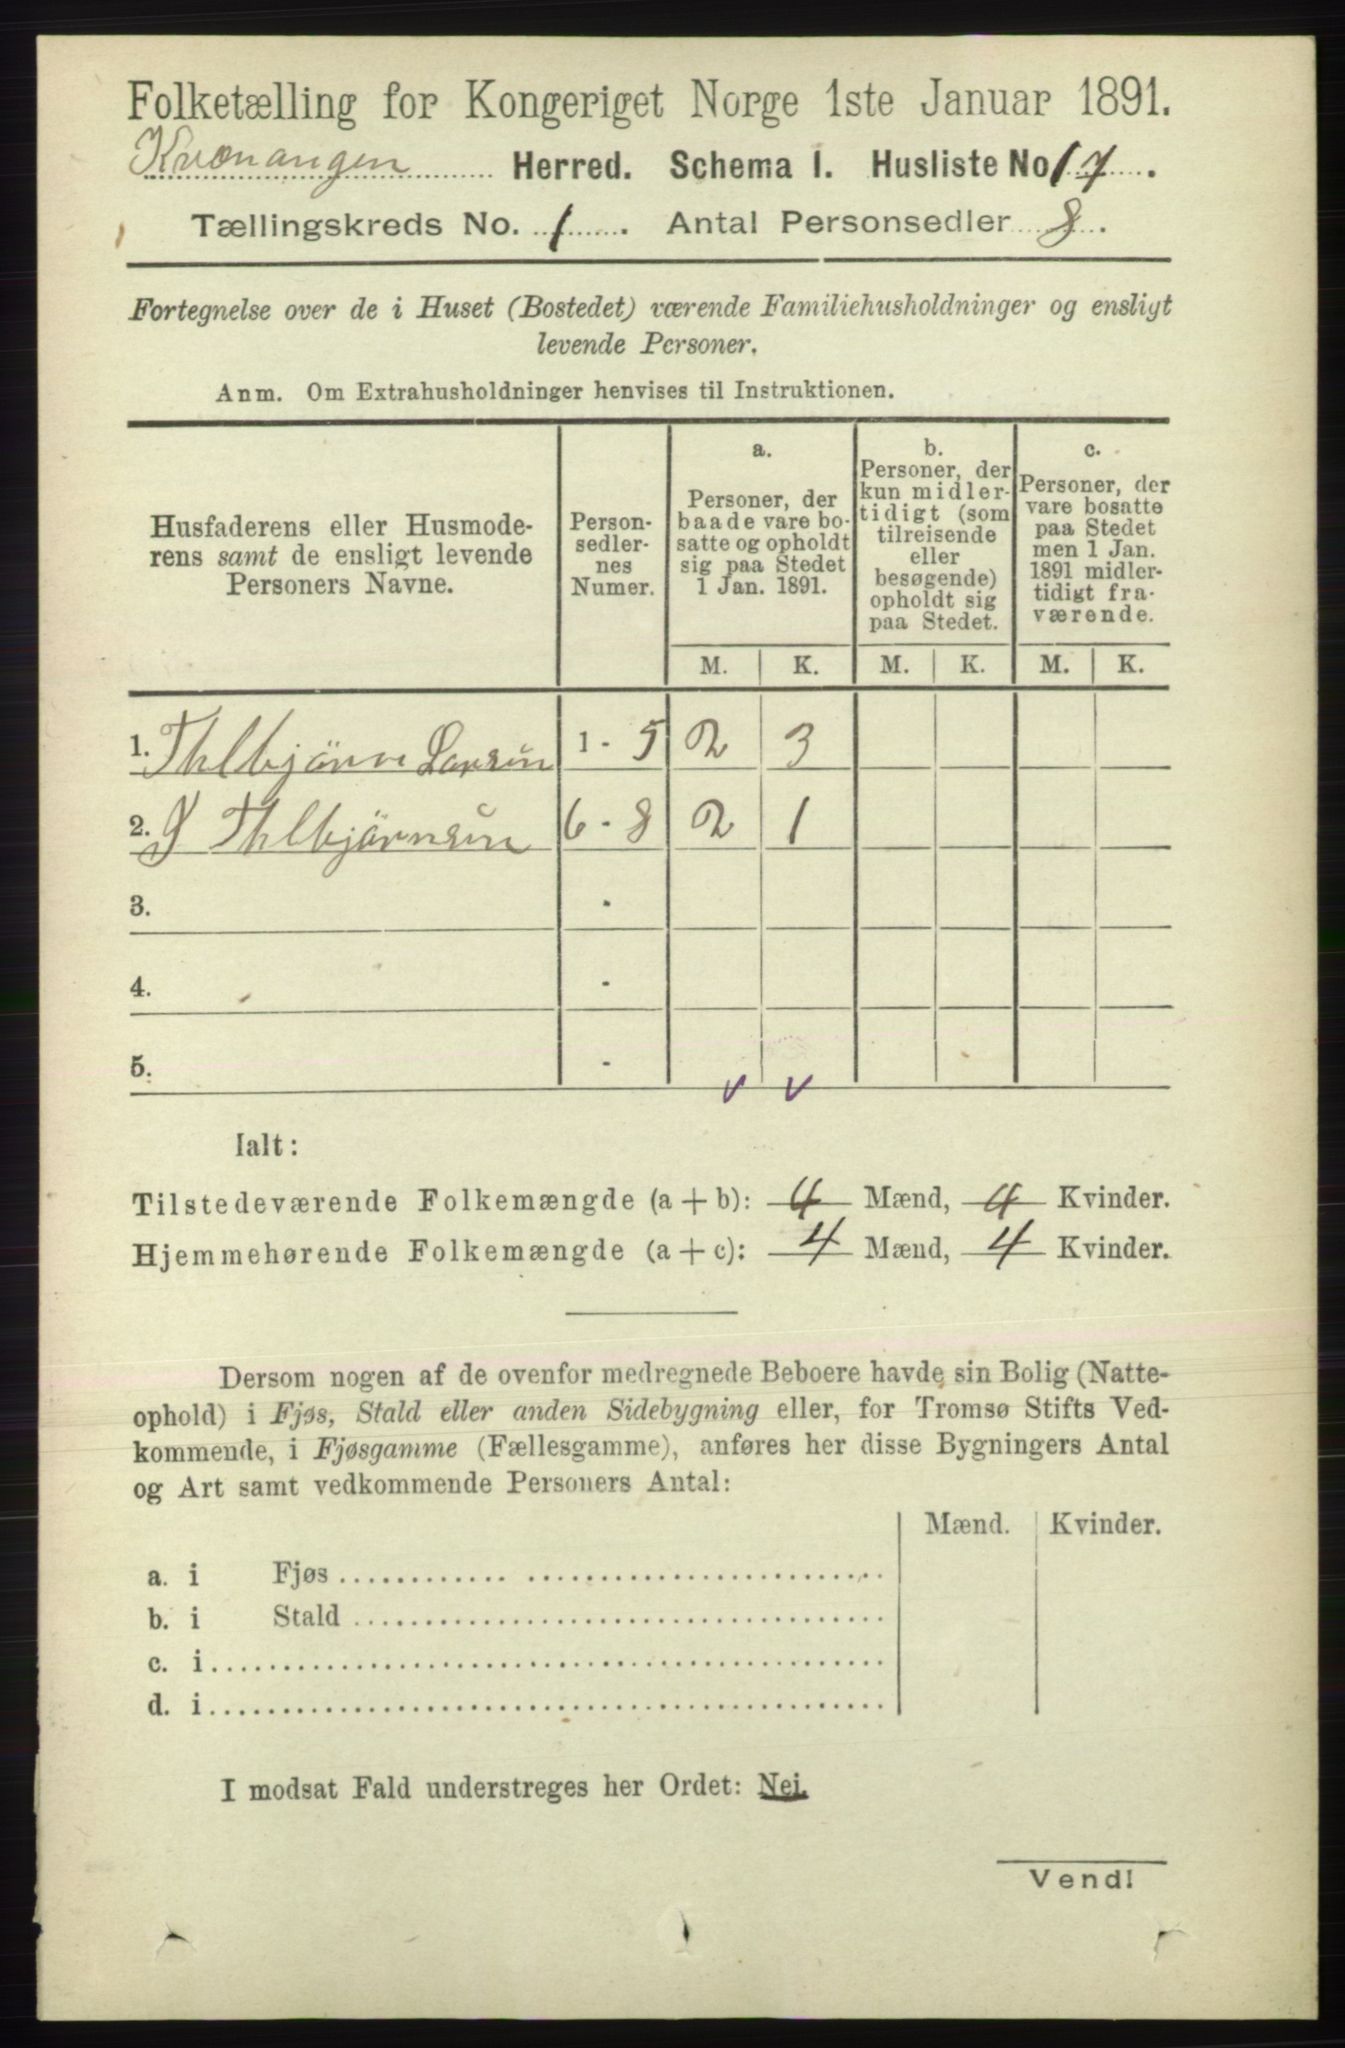 Folketælling for Kongeriget Norge 1ste Januar 1891.
Kvænangen Herred. Schema I. Husliste No. 17.
Tællingskreds No. 1. Antal Personsedler 8.
Fortegnelse over de i Huset (Bostedet) værende Familiehusholdninger og ensligt
levende Personer.
Anm. Om Extrahusholdninger henvises til Instruktionen.
Husfaderens eller Husmode-
rens samt de ensligt levende
Personers Navne.
Person-
sedler-
nes
Numer.
a.
Personer, der
baade vare bo-
satte og opholdt
sig paa Stedet
1 Jan. 1891.
b.
Personer, der
kun midler-
tidigt (som
tilreisende
eller
besøgende)
opholdt sig
paa Stedet.
c.
Personer, der
vare bosatte
paa Stedet
men 1 Jan.
1891 midler-
tidigt fra-
værende.
M. K. M. K. M. K.
1. Thlbjörn Larsen 1 - 5 2 3
2. J Thlbjörnsen 6 - 8 2 1
3. -
4. -
5. -
Ialt:
Tilstedeværende Folkemængde (a + b): 4 Mænd, 4 Kvinder.
Hjemmehørende Folkemængde (a + c): 4 Mænd, 4 Kvinder.
Dersom nogen af de ovenfor medregnede Beboere havde sin Bolig (Natte-
ophold) i Fjøs, Stald eller anden Sidebygning eller, for Tromsø Stifts Ved-
kommende, i Fjøsgamme (Fællesgamme), anføres her disse Bygningers Antal
og Art samt vedkommende Personers Antal:
Mænd. Kvinder.
a. i Fjøs
b. i Stald
c. i
d. i
I modsat Fald understreges her Ordet: Nei.
Vend!